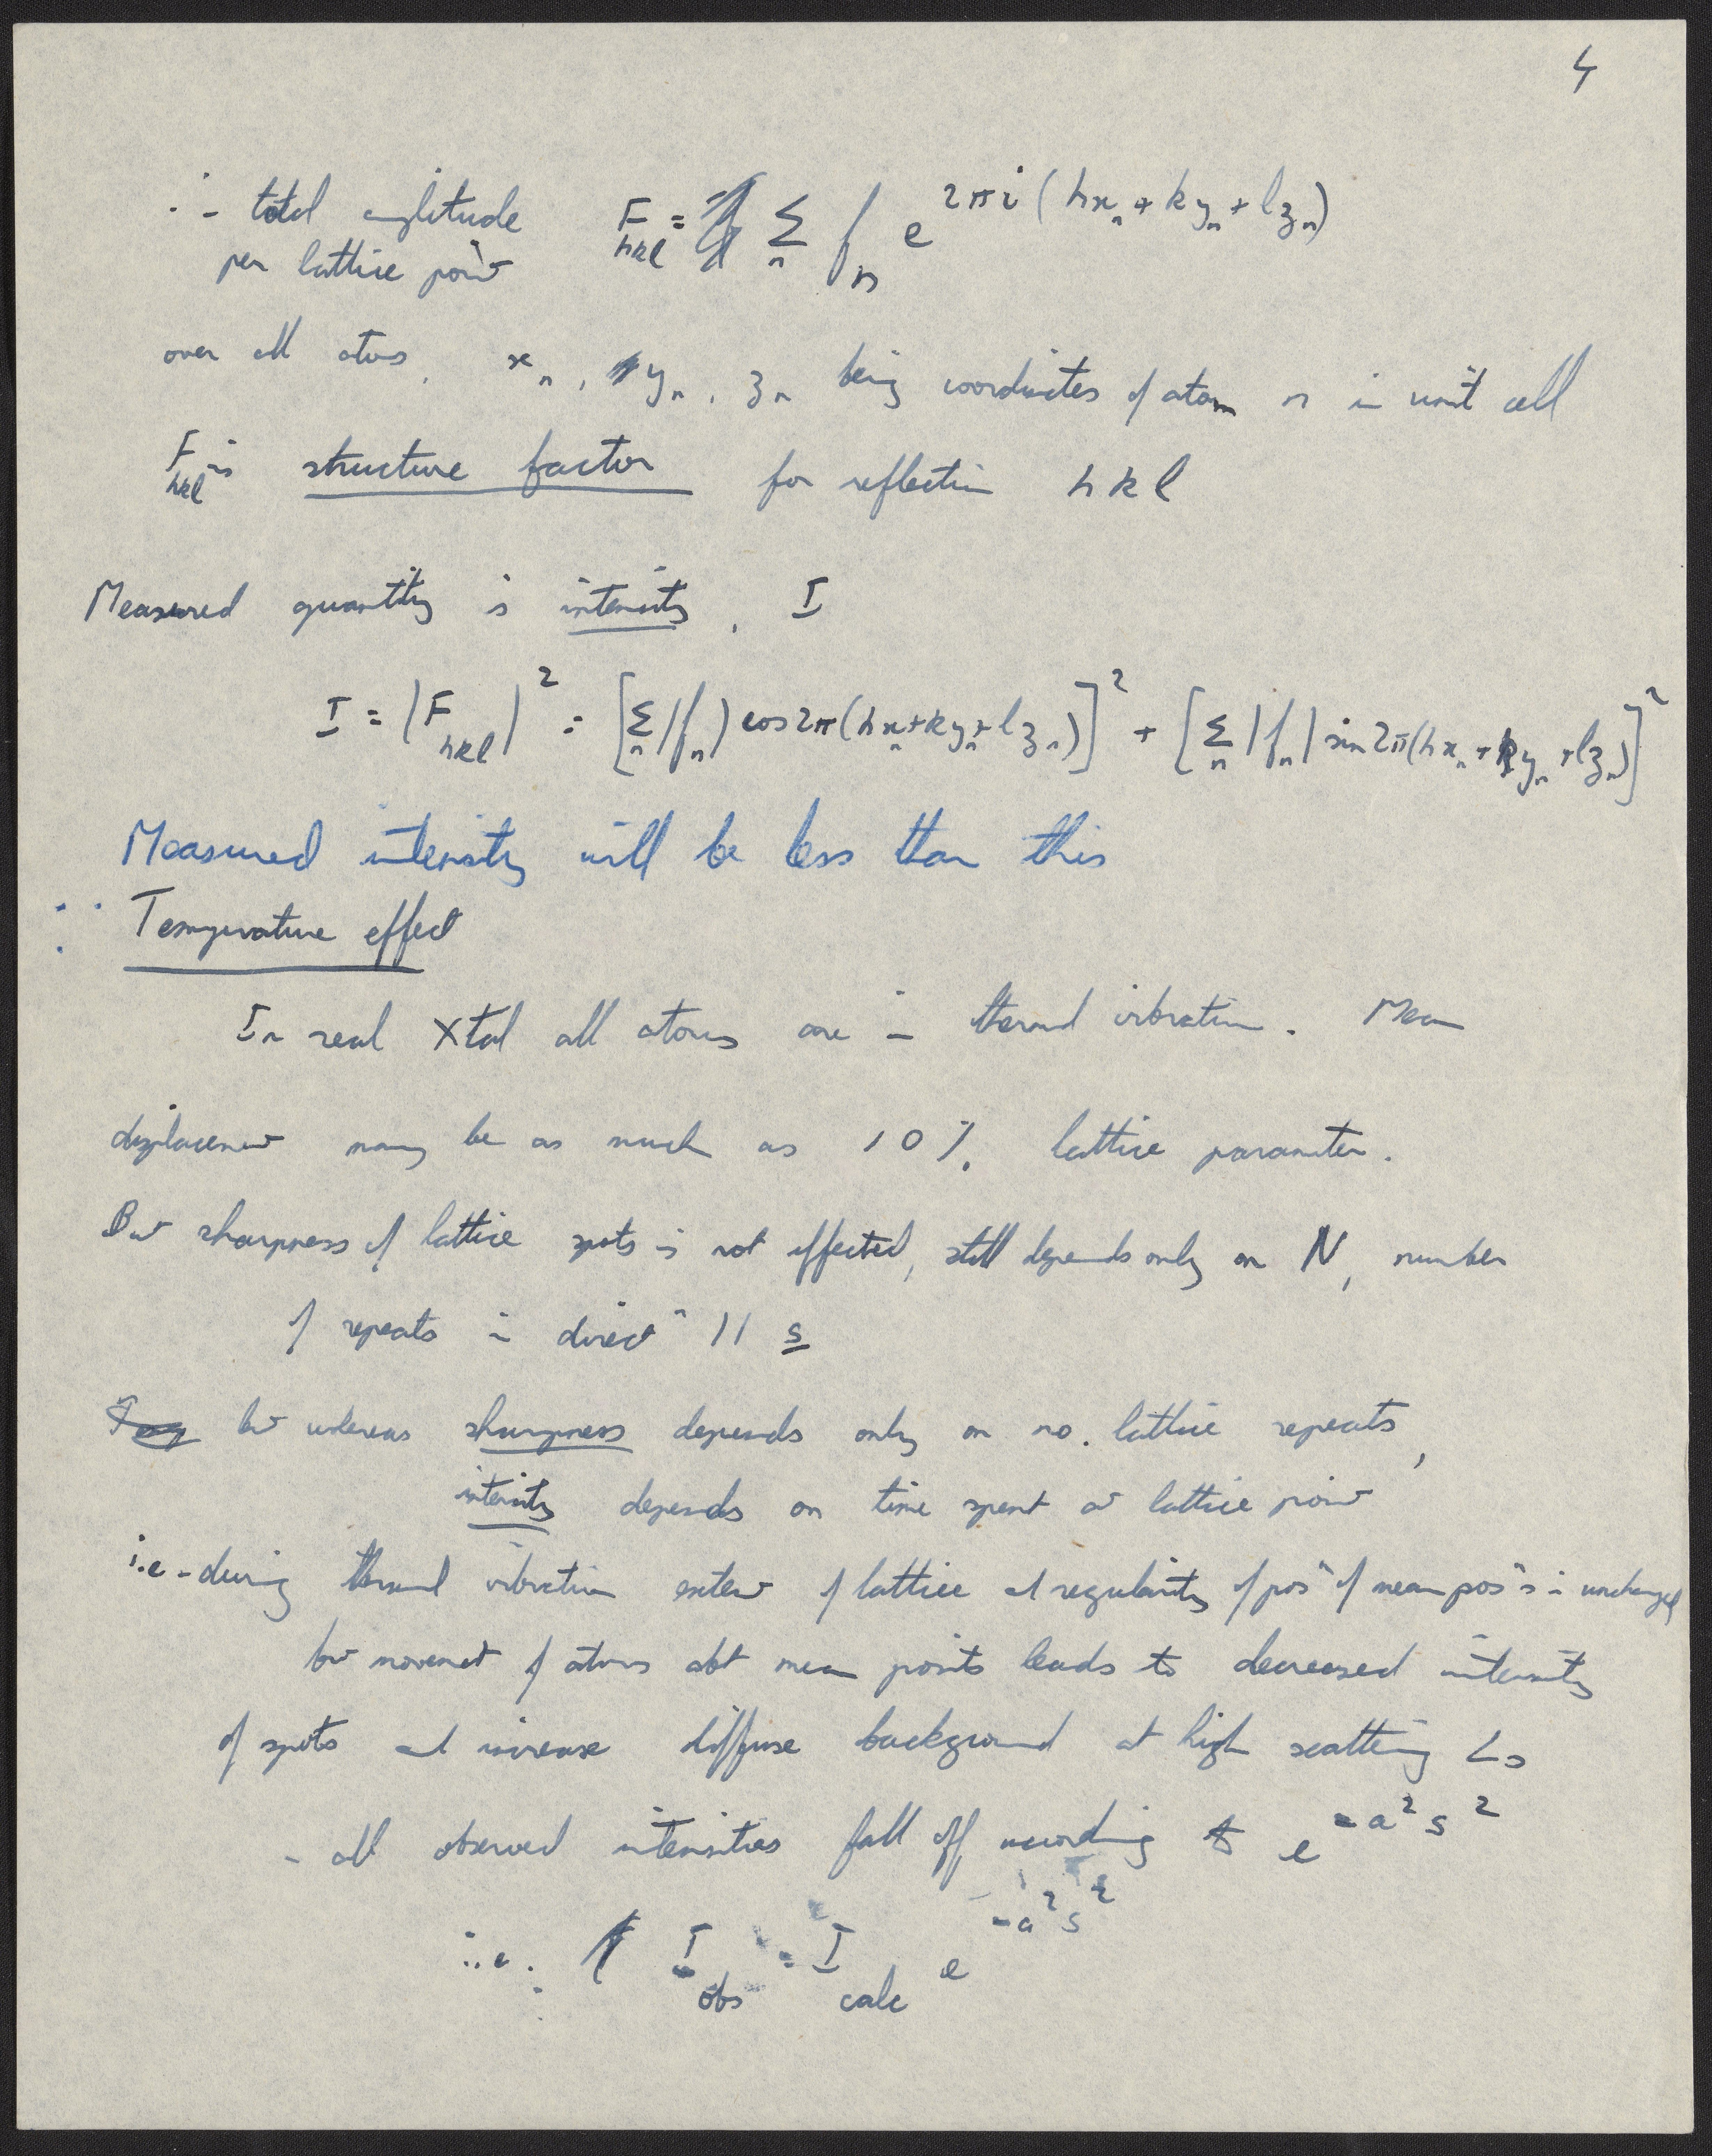 4
∴ total amplitude F_hkl = Σ_n f_n e^{2πi(hx_n + ky_n + lz_n)}
per lattice point
over all atoms, x_n, y_n, z_n being coordinates of atom n in unit cell
F_hkl is structure factor for reflection hkl
Measured quantity is intensity, I
I = |F_hkl|² = [Σ_n |f_n| cos2π(hx_n + ky_n + lz_n)]² + [Σ_n |f_n| sin2π(hx_n + ky_n + lz_n)]²
Measured intensity will be less than this
∵ Temperature effect
In real Xtal all atoms are in thermal vibration. Mean
displacement may be as much as 10% lattice parameter.
But sharpness of lattice spots is not affected, still depends only on N, number
of repeats in directn || s
but whereas sharpness depends only on no. lattice repeats,
intensity depends on time spent at lattice point
i.e - during thermal vibration extent of lattice and regularity of posn of mean posns is unchanged
but movement of atoms abt mean points leads to decreased intensity
of spots and increase diffuse background at high scattering ∠s
- all observed intensities fall off according to e^{-a²s²}
i.e. I_obs = I_calc e^{-a²s²}